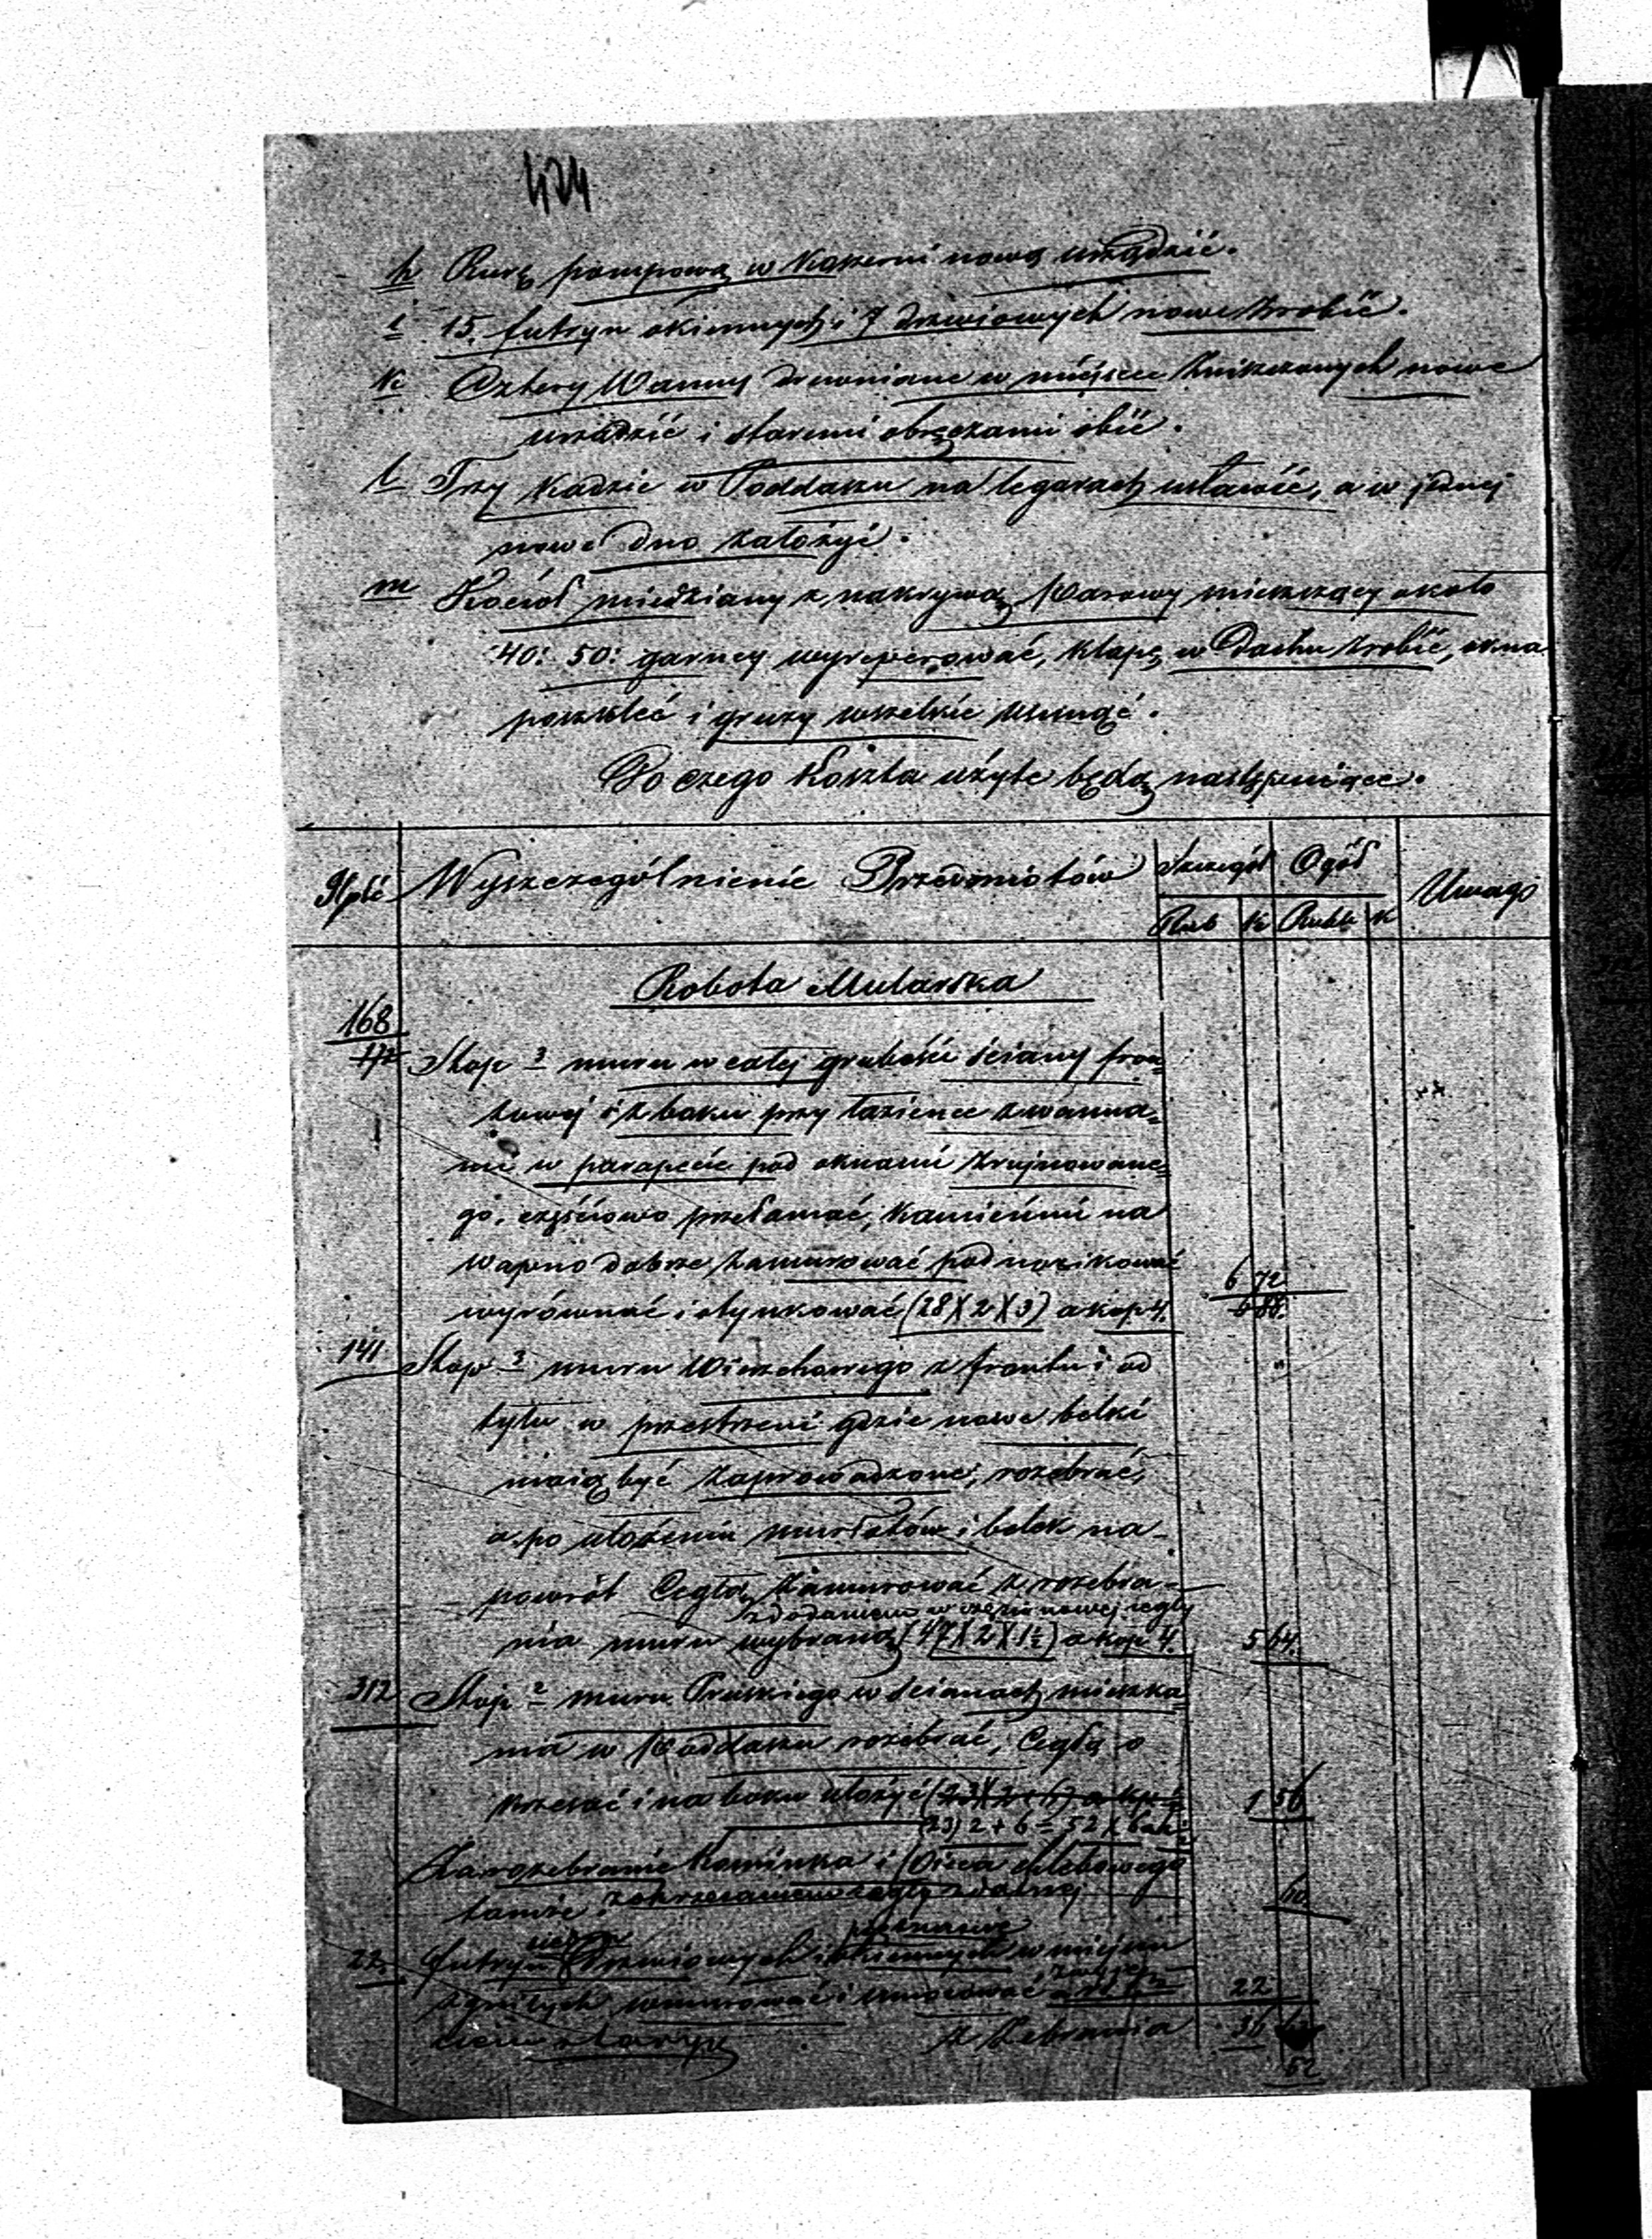 424
h Rurę pompową w Koszerni nową urządzić.
i 15. futryn okiennych i 7 drzwiowych nowe zrobić.
k Cztery Wanny drewniane w miejsce zniszczonych nowe
urządzić i staremi obręczami obić.
l Trzy Kadzie w Poddaszu na legarach ustawić, a w jednej
nowe dno założyć.
m Kocioł miedziany z nakrywą Parowy mieszczący około
40: 50: garncy wyreperować, klapę w Dachu zrobić, okna
poszkleć i gruzy wszelkie usunąć.
Do czego Koszta użyte będą następujące.
Ilość Wyszczególnienie Przedmiotów Szczegół Ogół Uwagi
Rub K Rubli K
Robota Mularska
168
172 Stop 3 muru w całej grubości ściany fron=
towej i z boku przy łazience z wanna=
mi w parapecie pod oknami zrujnowane=
go, częściowo przełamać, kamieniami na
wapno dobrze zamurować 6 72
wyrównać i otynkować (28)(2)(3) a kop 4. 6 88.
141 Stop 3 muru Wierzchowego z frontu i od
tyłu w przestrzeni gdzie nowe belki
mają być zaprowadzone, rozebrać,
a po ułożeniu murłatów i belek na-
powrót Cegłą zamurować z rozebra-
z dodaniem w części nowej cegły
nia muru wybraną (47)(2)(1½) a kop 4. 5 64.
312 Stop 2 muru Pruskiego w ścianach mieszka
nia w Poddaszu rozebrać, Cegłę o
krzesać i na boku ułożyć 1 56
(23) 2 + 6 = 52 x 6 a k ½
Za rozebranie Kominka i Pieca chlebowego
tamże z okrzesaniem cegły zdatnej 60
22. futryn Drzwiowych i okiennych w miejsce
zgniłych wmurować i umocować 22
Z Zebrania 36
52